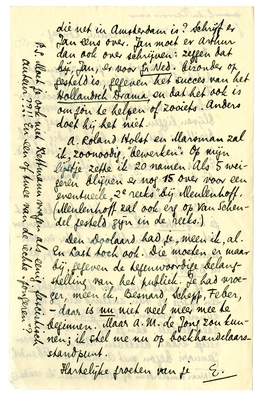 die net in Amsterdam is? Schrijf er
Jan eens over. Jan moet er Arthur
dan ook over schrijven: zeggen dat
hij, Jan, er voor Ned. bizonder op
gesteld is, gegeven het succes van het
Hollandsch Drama, en dat het ook is
om jou te helpen of zooiets. Anders
doet hij het niet.
A. Roland Holst en Marsman zal
ik, zoonoodig, "bewerken". Op mijn
lijstje zette ik 20 namen. Als 5 wei-
geren blijven er nog 15 over voor een
eventueele "2e reeks" bij Meulenhoff.
(Meulenhoff zal ook erg op Van Schen-
del gesteld zijn in de reeks.)
Den Doolaard had je, meen ik, al.
En Last toch ook. Die moeten er maar
bij, gegeven de tegenwoordige belang-
stelling van het publiek. Je had vroe-
ger, meen ik, Besnard, Schepp, Feber,
- daar is nu niet veel meer mee te
beginnen. Maar A.M. de Jong zou kun-
nen; ik stel me nu op boekhandelaars-
standpunt.
Hartelijke groeten van je E.
P.S. Moet je ook niet Kettmann vragen als eenig fascistisch
auteur???! En een of twee van de echte jongeren??